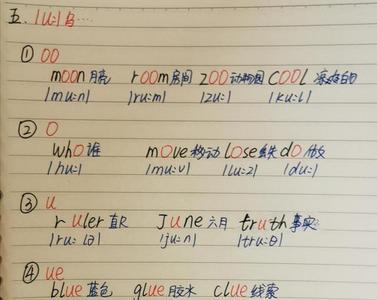 五. /u:/ 乌...
① oo
moon 月亮 room 房间 zoo 动物园 cool 凉爽的
/mu:n/ /ru:m/ /zu:/ /ku:l/
② o
who 谁 move 移动 lose 丢失 do 做
/hu:/ /mu:v/ /lu:z/ /du:/
③ u
ruler 直尺 June 六月 truth 事实
/ru: lə/ /ju:n/ /tru:θ/
④ ue
blue 蓝色 glue 胶水 clue 线索